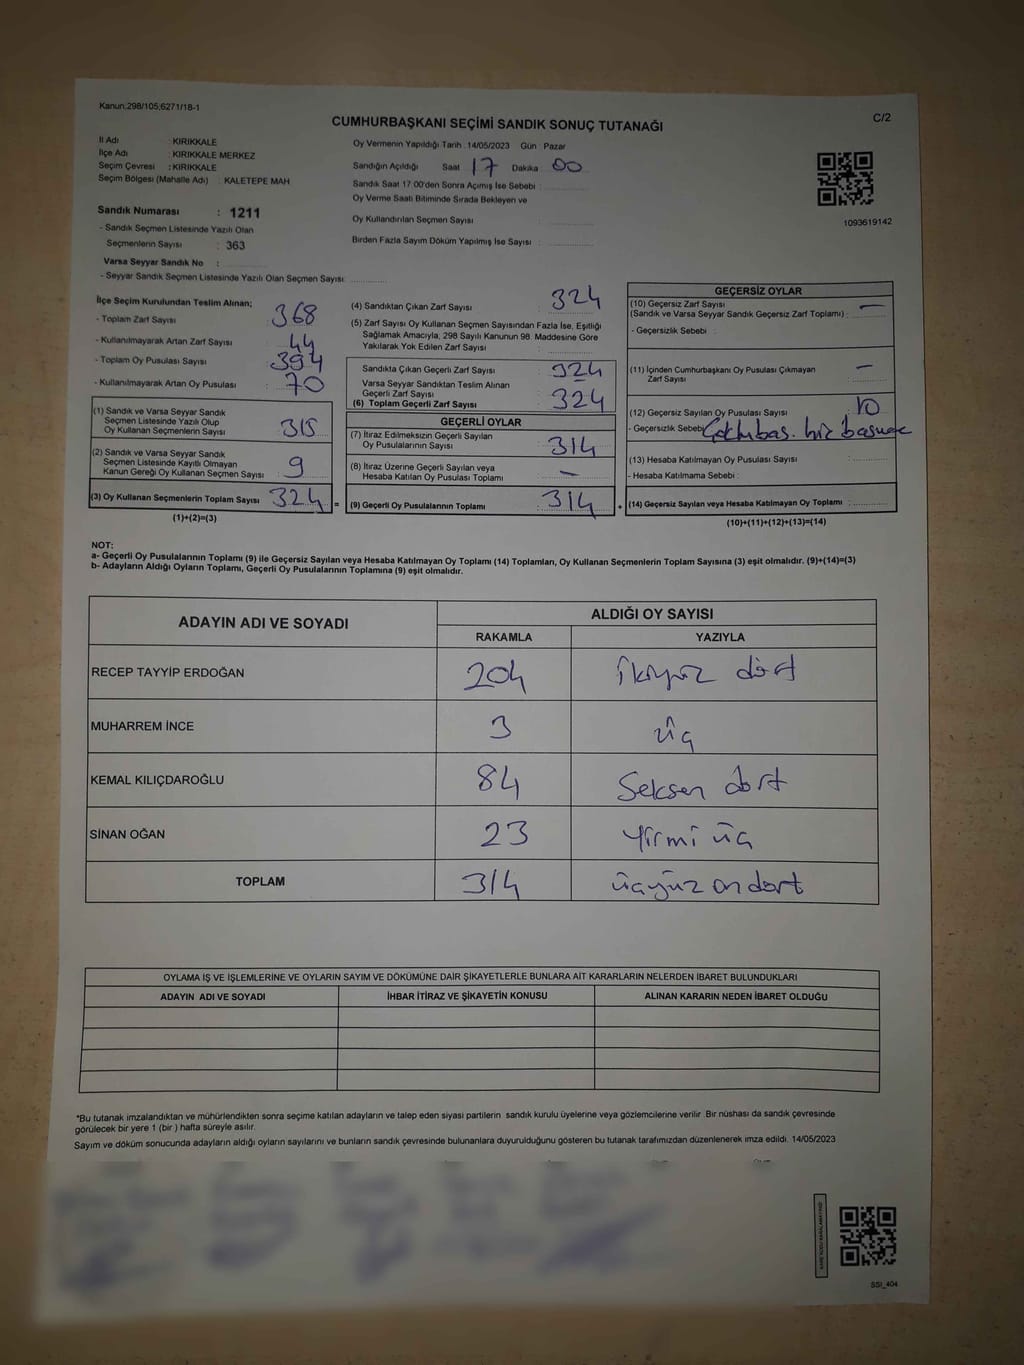 Kanun;298/105;6271/18-1
C/2
CUMHURBAŞKANI SEÇİMİ SANDIK SONUÇ TUTANAĞI
İl Adı : KIRIKKALE
İlçe Adı : KIRIKKALE MERKEZ
Seçim Çevresi : KIRIKKALE
Seçim Bölgesi (Mahalle Adı) : KALETEPE MAH
Sandık Numarası : 1211
- Sandık Seçmen Listesinde Yazılı Olan
Seçmenlerin Sayısı : 363
Varsa Seyyar Sandık No :
- Seyyar Sandık Seçmen Listesinde Yazılı Olan Seçmen Sayısı:
Oy Vermenin Yapıldığı Tarih :14/05/2023 Gün : Pazar
Sandığın Açıldığı Saat 17 Dakika 00
Sandık Saat 17:00'den Sonra Açılmış İse Sebebi :
Oy Verme Saati Bitiminde Sırada Bekleyen ve
Oy Kullandırılan Seçmen Sayısı :
Birden Fazla Sayım Döküm Yapılmış İse Sayısı :
1093619142
İlçe Seçim Kurulundan Teslim Alınan;
- Toplam Zarf Sayısı : 368
- Kullanılmayarak Artan Zarf Sayısı : 44
- Toplam Oy Pusulası Sayısı : 394
- Kullanılmayarak Artan Oy Pusulası : 70
(1) Sandık ve Varsa Seyyar Sandık
Seçmen Listesinde Yazılı Olup
Oy Kullanan Seçmenlerin Sayısı : 315
(2) Sandık ve Varsa Seyyar Sandık
Seçmen Listesinde Kayıtlı Olmayan
Kanun Gereği Oy Kullanan Seçmen Sayısı : 9
(3) Oy Kullanan Seçmenlerin Toplam Sayısı : 324 =
(1)+(2)=(3)
(4) Sandıktan Çıkan Zarf Sayısı : 324
(5) Zarf Sayısı Oy Kullanan Seçmen Sayısından Fazla İse, Eşitliği
Sağlamak Amacıyla, 298 Sayılı Kanunun 98. Maddesine Göre
Yakılarak Yok Edilen Zarf Sayısı :
Sandıkta Çıkan Geçerli Zarf Sayısı : 324
Varsa Seyyar Sandıktan Teslim Alınan
Geçerli Zarf Sayısı : -
(6) Toplam Geçerli Zarf Sayısı : 324
GEÇERLİ OYLAR
(7) İtiraz Edilmeksizin Geçerli Sayılan
Oy Pusulalarının Sayısı : 314
(8) İtiraz Üzerine Geçerli Sayılan veya
Hesaba Katılan Oy Pusulası Toplamı : -
(9) Geçerli Oy Pusulalarının Toplamı : 314 +
GEÇERSİZ OYLAR
(10) Geçersiz Zarf Sayısı
(Sandık ve Varsa Seyyar Sandık Geçersiz Zarf Toplamı) : -
- Geçersizlik Sebebi :
(11) İçinden Cumhurbaşkanı Oy Pusulası Çıkmayan
Zarf Sayısı : -
(12) Geçersiz Sayılan Oy Pusulası Sayısı : 10
- Geçersizlik Sebebi
(13) Hesaba Katılmayan Oy Pusulası Sayısı :
- Hesaba Katılmama Sebebi :
(14) Geçersiz Sayılan veya Hesaba Katılmayan Oy Toplamı :
(10)+(11)+(12)+(13)=(14)
NOT:
a- Geçerli Oy Pusulalarının Toplamı (9) ile Geçersiz Sayılan veya Hesaba Katılmayan Oy Toplamı (14) Toplamları, Oy Kullanan Seçmenlerin Toplam Sayısına (3) eşit olmalıdır. (9)+(14)=(3)
b- Adayların Aldığı Oyların Toplamı, Geçerli Oy Pusulalarının Toplamına (9) eşit olmalıdır.
ADAYIN ADI VE SOYADI
ALDIĞI OY SAYISI
RAKAMLA YAZIYLA
RECEP TAYYİP ERDOĞAN 204 ikiyüz dört
MUHARREM İNCE 3 üç
KEMAL KILIÇDAROĞLU 84 Seksen dört
SİNAN OĞAN 23 Yirmi üç
TOPLAM 314 üçyüz on dört
OYLAMA İŞ VE İŞLEMLERİNE VE OYLARIN SAYIM VE DÖKÜMÜNE DAİR ŞİKAYETLERLE BUNLARA AİT KARARLARIN NELERDEN İBARET BULUNDUKLARI
ADAYIN ADI VE SOYADI İHBAR İTİRAZ VE ŞİKAYETİN KONUSU ALINAN KARARIN NEDEN İBARET OLDUĞU
*Bu tutanak imzalandıktan ve mühürlendikten sonra seçime katılan adayların ve talep eden siyasi partilerin sandık kurulu üyelerine veya gözlemcilerine verilir. Bir nüshası da sandık çevresinde
görülecek bir yere 1 (bir ) hafta süreyle asılır.
Sayım ve döküm sonucunda adayların aldığı oyların sayılarını ve bunların sandık çevresinde bulunanlara duyurulduğunu gösteren bu tutanak tarafımızdan düzenlenerek imza edildi. 14/05/2023
KARE KODU KARALAMAYINIZ!
SSI_404